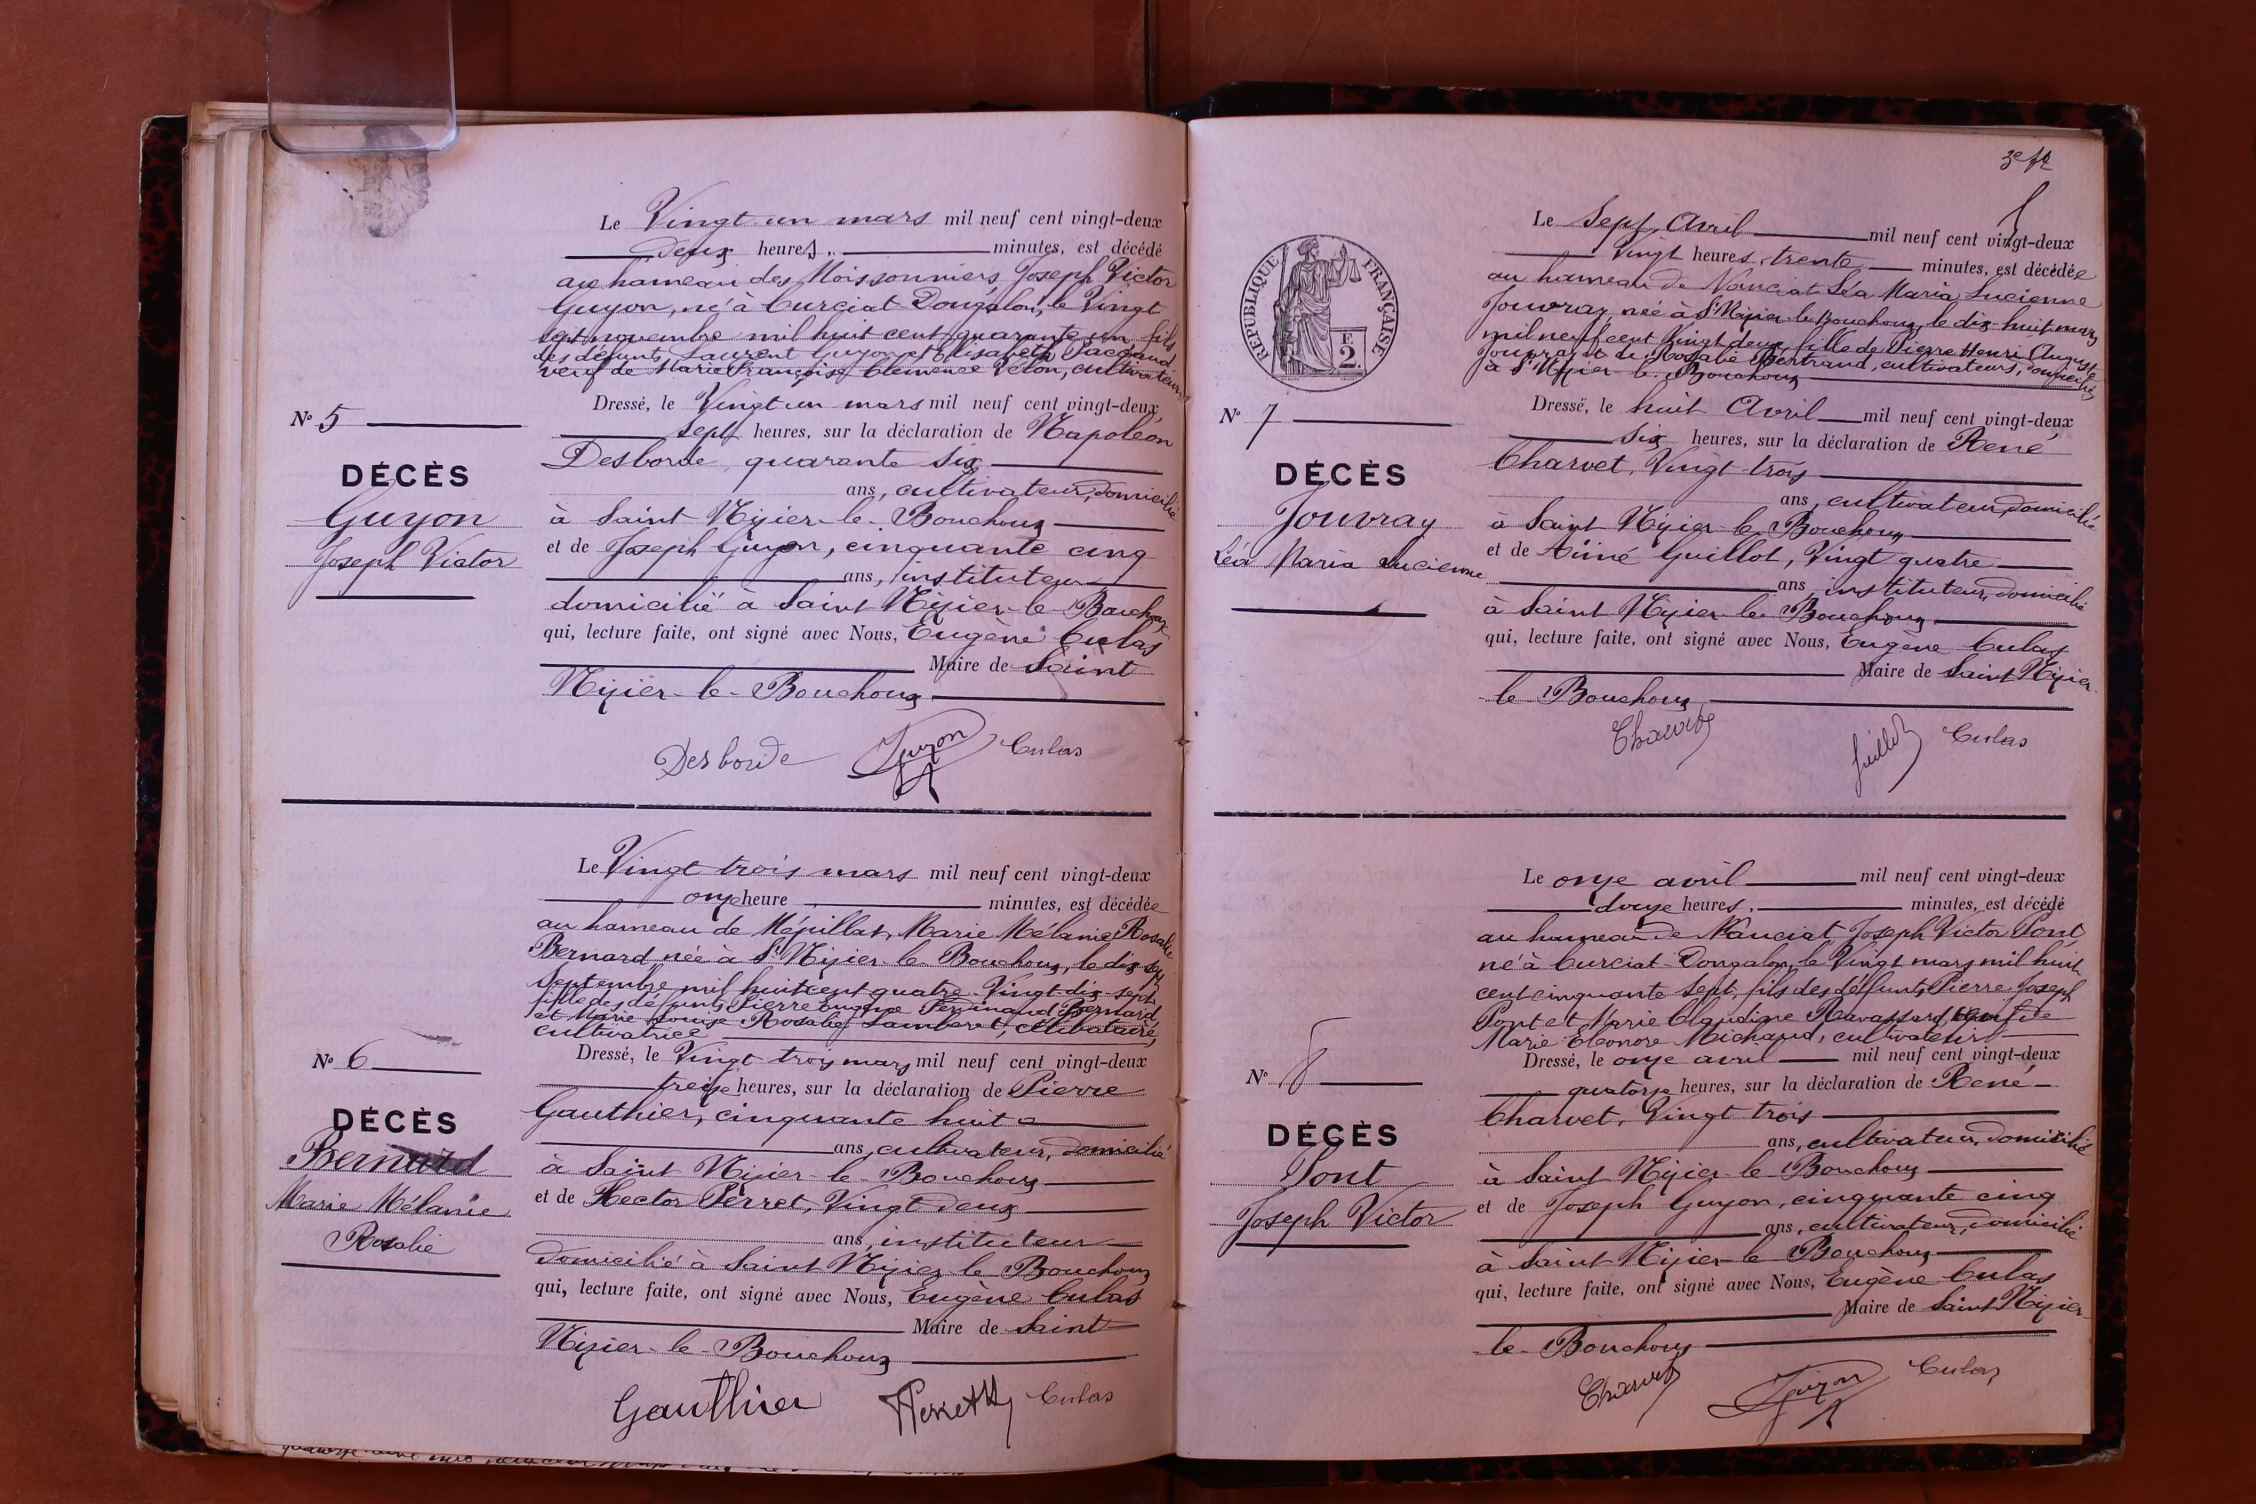 Le Vingt-un mars mil neuf cent vingt-deux
deux heures, minutes, est décédé
au hameau des Moissonniers, Joseph Victor
Guyon, né à Curciat-Dongalon, le Vingt
sept novembre mil huit cent quarante un, fils
des défunts Laurent Guyon et Elisabeth
veuf de Marie Françoise Clémence Velon, cultivateur
Nº 5
Dressé, le Vingt un mars mil neuf cent vingt-deux,
sept heures, sur la déclaration de Napoléon
Desborde, quarante six
DÉCÈS
ans, cultivateur, domicilié
Guyon
à Saint Nizier-le-Bouchoux
Joseph Victor
et de Joseph Guyon, cinquante cinq
ans, instituteur
domicilié à Saint Nizier-le-Bouchoux
qui, lecture faite, ont signé avec Nous, Eugène Culas
Maire de Saint
Nizier-le-Bouchoux
Desborde Guyon Culas
Le Vingt trois mars mil neuf cent vingt-deux
onze heure, minutes, est décédée
au hameau de Mépillat, Marie Mélanie Rosalie
Bernard, née à St Nizier-le-Bouchoux, le dix sept
Septembre mil huit cent quatre-Vingt-dix-sept
fille des défunts Pierre Eugène Ferdinand Bernard,
et Marie Louise Rosalie Lambert, célibataire,
cultivatrice
Nº 6
Dressé, le Vingt trois mars mil neuf cent vingt-deux
treize heures, sur la déclaration de Pierre
Gauthier, cinquante huit
DÉCÈS
ans, cultivateur, domicilié
Bernard
à Saint Nizier-le-Bouchoux
Marie Mélanie
et de Hector Perret, Vingt deux
Rosalie
ans, instituteur
domicilié à Saint Nizier-le-Bouchoux
qui, lecture faite, ont signé avec Nous, Eugène Culas
Maire de Saint
Nizier-le-Bouchoux
Gauthier Perret Culas
3e
RÉPUBLIQUE FRANÇAISE
F.
2.
Le Sept Avril mil neuf cent vingt-deux
Vingt heures, trente minutes, est décédée
au hameau de Nanciat Léa Maria Lucienne
Jouvray, née à St Nizier-le-Bouchoux, le dix-huit mars
mil neuf cent Vingt deux, fille de Pierre Henri Auguste
Jouvray et de Rosalie Bertrand, cultivateurs, domiciliés
à St Nizier-le-Bouchoux
Nº 7
Dressé, le huit Avril mil neuf cent vingt-deux
Six heures, sur la déclaration de René
Charvet, Vingt trois
DÉCÈS
ans, cultivateur, domicilié
Jouvray
à Saint Nizier-le-Bouchoux
Léa Maria Lucienne
et de Aimé Guillot, Vingt quatre
ans, instituteur, domicilié
à Saint Nizier-le-Bouchoux
qui, lecture faite, ont signé avec Nous, Eugène Culas
Maire de Saint Nizier-
le-Bouchoux
Charvet Guillot Culas
Le onze avril mil neuf cent vingt-deux
douze heures, minutes, est décédé
au hameau de Nanciat Joseph Victor Pont,
né à Curciat-Dongalon, le Vingt mars mil huit
cent cinquante sept, fils des défunts Pierre Joseph
Pont et Marie Claudine Ravassard, veuf de
Marie Eléonore Michaud, cultivateur
Nº 8
Dressé, le onze avril mil neuf cent vingt-deux
quatorze heures, sur la déclaration de René
Charvet, Vingt trois
DÉCÈS
ans, cultivateur, domicilié
Pont
à Saint Nizier-le-Bouchoux
Joseph Victor
et de Joseph Guyon, cinquante cinq
ans, cultivateur, domicilié
à Saint Nizier-le-Bouchoux
qui, lecture faite, ont signé avec Nous, Eugène Culas
Maire de Saint Nizier-
le-Bouchoux
Charvet Guyon Culas